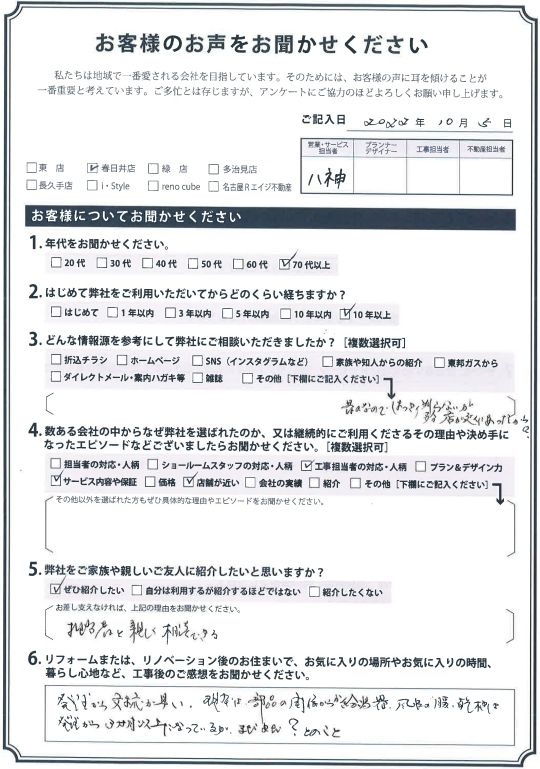 お客様のお声をお聞かせください
私たちは地域で一番愛される会社を目指しています。そのためには、お客様の声に耳を傾けることが
一番重要と考えています。ご多忙とは存じますが、アンケートにご協力のほどよろしくお願い申し上げます。
ご記入日 2022年 10月 5日
営業・サービス担当者 プランナーデザイナー 工事担当者 不動産担当者
八神
□東 店 ☑春日井店 □緑 店 □多治見店
□長久手店 □i・Style □reno cube □名古屋Rエイジ不動産
お客様についてお聞かせください
1. 年代をお聞かせください。
□20代 □30代 □40代 □50代 □60代 ☑70代以上
2. はじめて弊社をご利用いただいてからどのくらい経ちますか?
□はじめて □1年以内 □3年以内 □5年以内 □10年以内 ☑10年以上
3. どんな情報源を参考にして弊社にご相談いただきましたか?[複数選択可]
□折込チラシ □ホームページ □SNS(インスタグラムなど) □家族や知人からの紹介 □東邦ガスから
□ダイレクトメール・案内ハガキ等 □雑誌 □その他[下欄にご記入ください]
昔なのではっきり判らないが
4. 数ある会社の中からなぜ弊社を選ばれたのか、又は継続的にご利用くださるその理由や決め手に
なったエピソードなどございましたらお聞かせください。[複数選択可]
□担当者の対応・人柄 □ショールームスタッフの対応・人柄 ☑工事担当者の対応・人柄 □プラン&デザイン力
☑サービス内容や保証 □価格 ☑店舗が近い □会社の実績 □紹介 □その他[下欄にご記入ください]
その他以外を選ばれた方もぜひ具体的な理由やエピソードをお聞かせください。
5. 弊社をご家族や親しいご友人に紹介したいと思いますか?
☑ぜひ紹介したい □自分は利用するが紹介するほどではない □紹介したくない
お差し支えなければ、上記の理由をお聞かせください。
担当者と親しく相談できる
6. リフォームまたは、リノベーション後のお住まいで、お気に入りの場所やお気に入りの時間、
暮らし心地など、工事後のご感想をお聞かせください。
部品の関係からか給湯器
3ヶ月以上になっているが、まだ ? とのこと